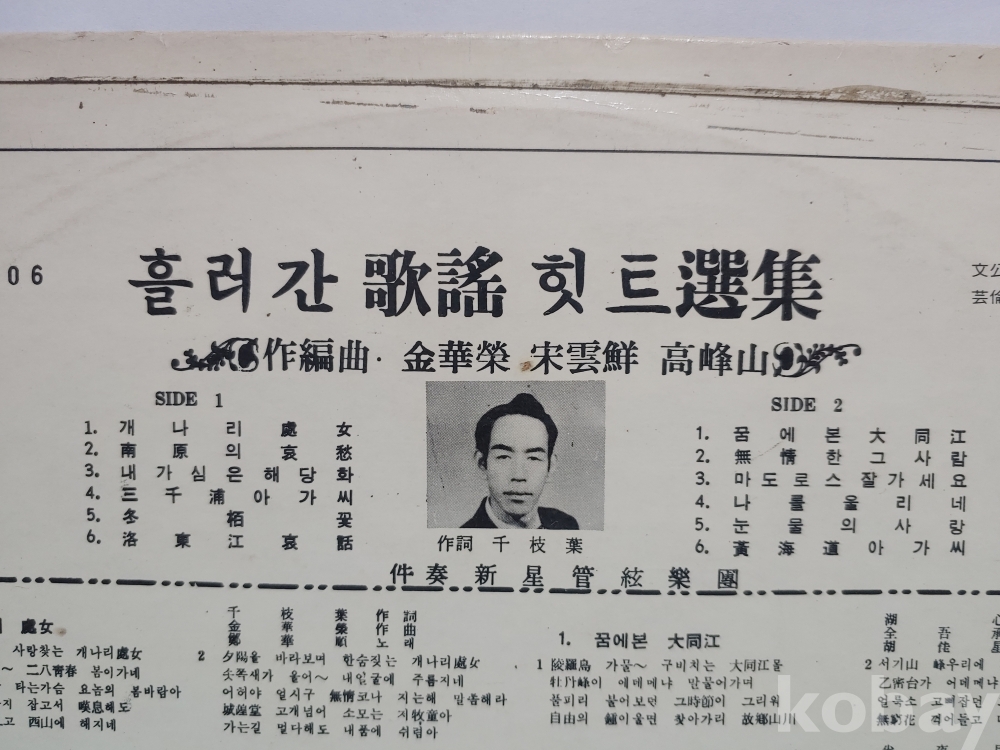 06
흘러간 歌謠 힛트選集
文公
芸倫
作編曲· 金華榮 宋雲鮮 高峰山
SIDE 1
1. 개나리處女
2. 南原의哀愁
3. 내가심은해당화
4. 三千浦아가씨
5. 冬栢꽃
6. 洛東江哀話
作詞 千枝葉
SIDE 2
1. 꿈에본大同江
2. 無情한그사람
3. 마도로스잘가세요
4. 나를울리네
5. 눈물의사랑
6. 黃海道아가씨
伴奏新星管絃樂團
處女
千枝葉 作詞
金華榮 作曲
鄭華順 노래
사랑찾는 개나리處女
~ 二八靑春 봄이가네
타는가슴 요놈의 봄바람아
지 잡고서 嘆息해도
고 西山에 해지네
2 夕陽을 바라보며 한숨짖는 개나리處女
소쪽새가 울어~ 내얼굴에 주름지네
어허야 얼시구 無情코나 지는해 말좀해라
城隍堂 고개넘어 소모는 저牧童아
가는길 멀다해도 내품에 쉬렴아
1. 꿈에본 大同江
1 陵羅島 가물~ 구비치는 大同江물
牡丹峰이 에데메냐 말물어가며
풀피리 불어보던 그時節이 그리워
自由의 鐘이울면 찾아가리 故鄕山川
湖心
全吾承
胡佳星
2 서기山 峰우리에
乙密台가 어데메냐
無窮花 꺾어들고
kobay